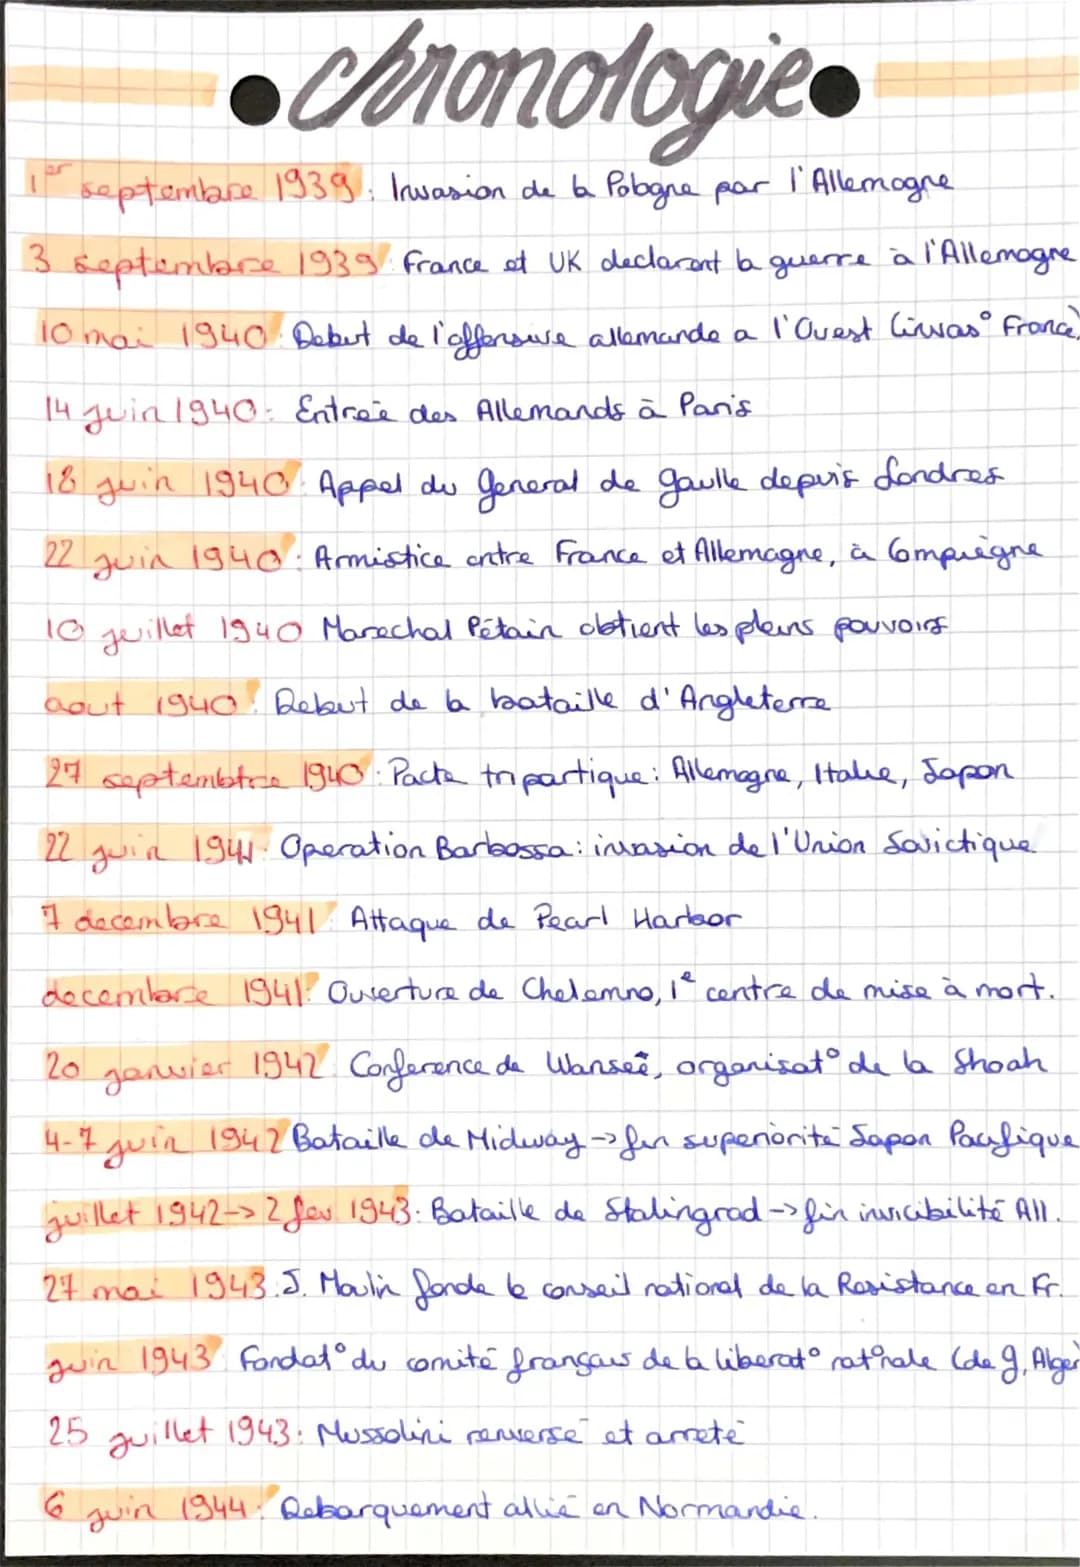 •chronologie•
1er septembre 1939: Invasion de la Pologne par l'Allemagne
3 septembre 1939: France et UK declarent la guerre à l'Allemagne
10 mai 1940: Debut de l'offensive allemande a l'Ouest (invas° France)
14 juin 1940: Entrée des Allemands à Paris
18 juin 1940: Appel du General de gaulle depuis Londres
22 juin 1940: Armistice entre France et Allemagne, à Compiègne
10 juillet 1940 Marechal Pétain obtient les pleins pouvoirs
aout 1940: Debut de la bataille d'Angleterre
27 septembtre 1940: Pacte tripartique: Allemagne, Italie, Japon
22 juin 1941: Operation Barbossa: invasion de l'Union Soviétique
7 decembre 1941: Attaque de Pearl Harbor
decembre 1941: Ouverture de Chelemno, 1e centre de mise à mort.
20 janvier 1942: Conference de Wanseê, organisat° de la Shoah
4-7 juin 1942 Bataille de Midway -> fin superiorité Japon Pacifique
juillet 1942 -> 2 fev 1943: Bataille de Stalingrad -> fin invicibilité All.
27 mai 1943: J. Moulin fonde le conseil national de la Resistance en Fr.
juin 1943: Fondat° du comité français de la liberat° nat°nale (de g, Alger)
25 juillet 1943: Mussolini renversé et arreté
6 juin 1944: Debarquement allié en Normandie.